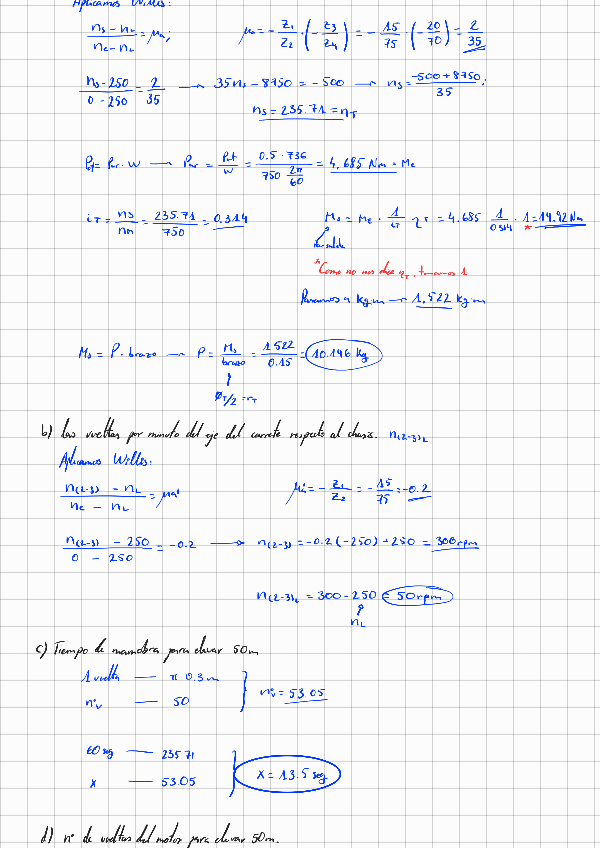 Aplicamos Willis:
ns - nL / ne - nL = μa; μa = - Z1/Z2 · (- Z3/Z4) = - 15/75 · (- 20/70) = 2/35
ns - 250 / 0 - 250 = 2/35 → 35ns - 8750 = -500 → ns = -500 + 8750 / 35;
ns = 235.71 = nT
Pot = Par · W → Par = Pot/W = 0.5 · 736 / 750 2π/60 = 4,685 Nm = Me
iT = ns/nm = 235.71/750 = 0.314 Ms = Me · 1/iT ηT = 4.685 1/0.314 · 1 = 14.92 Nm
Par salida
*Como no nos dice ηT, tomamos 1
Pasamos a kg·m → 1,522 kg·m
Ms = P · brazo → P = Ms/brazo = 1.522/0.15 = 10.146 kg
ØT/2 = rT
b) Las vueltas por minuto del eje del carrete respecto al chasis. n(2-3)L
Aplicamos Willis:
n(2-3) - nL / ne - nL = μa' μa' = - Z1/Z2 = - 15/75 = -0.2
n(2-3) - 250 / 0 - 250 = -0.2 → n(2-3) = -0.2 (-250) + 250 = 300 rpm
n(2-3)L = 300 - 250 = 50 rpm
nL
c) Tiempo de maniobra para elevar 50m
1 vuelta — π 0.3 m
nºv — 50
nºv = 53.05
60 seg — 235.71
x — 53.05
x = 13.5 seg
d) nº de vueltas del motor para elevar 50m.